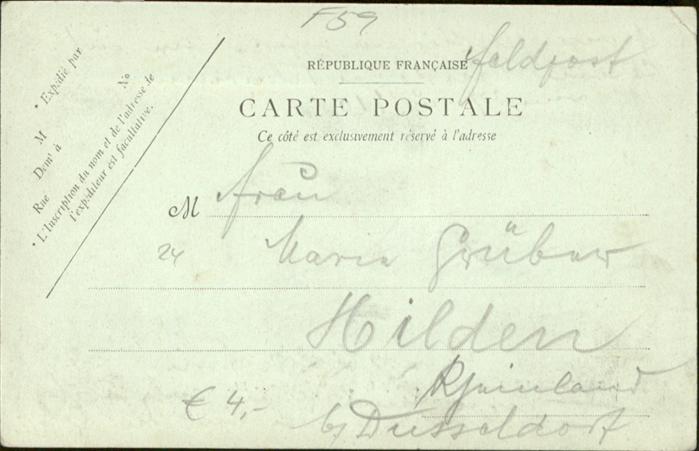 F59
RÉPUBLIQUE FRANÇAISE Feldpost
CARTE POSTALE
Ce côté est exclusivement réservé à l'adresse
* Expédié par
M
Demt à
Rue N°
* L'Inscription du nom et de l'adresse de
l'expéditeur est facultative.
M Frau
24 Marie Grüber
Hilden
Rheinland
€ 4,- b/ Dusseldorf